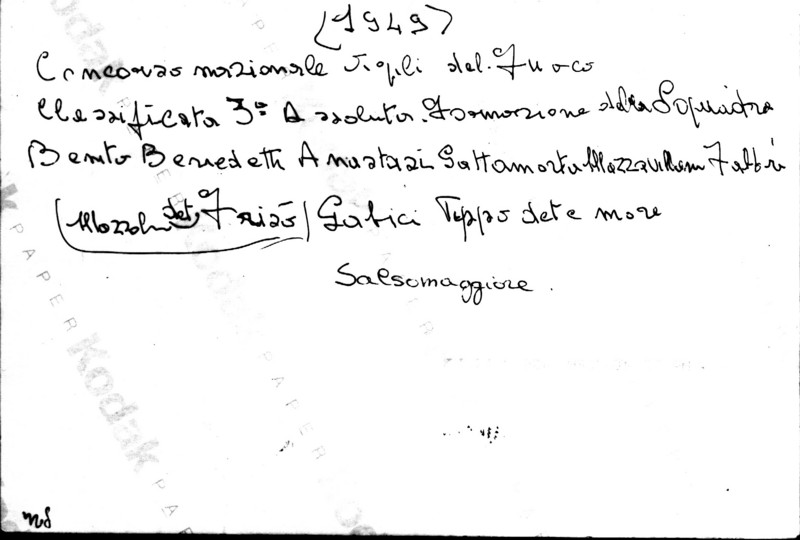 (1949)
Concorso nazionale Vigili del Fuoco
Classificata 3ª Assoluta. Formazione della Squadra
Bento Benedetti Anastasi Gattamorta Mazzavillani Fabbri
(Mazzolu det. Frisò) Gatici Teppo det e more
Salsomaggiore.
Kodak
PAPER
Kodak
PAPER